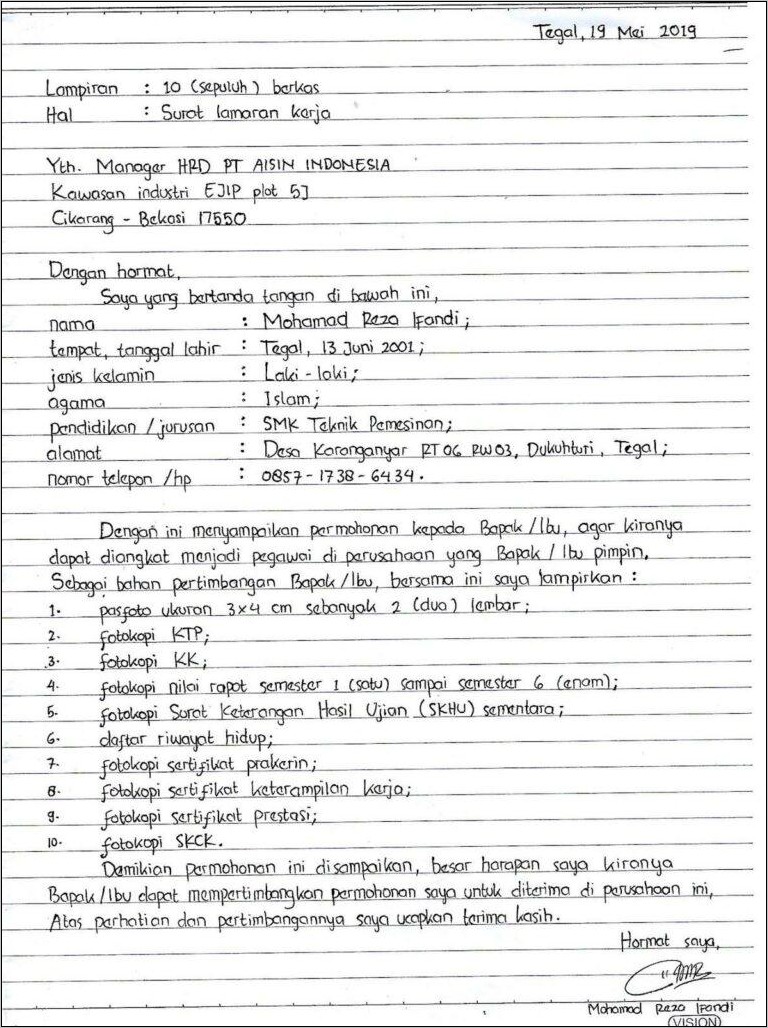 Tegal, 19 Mei 2019
Lampiran : 10 (sepuluh) berkas
Hal : Surat lamaran kerja
Yth. Manager HRD PT AISIN INDONESIA
Kawasan industri EJIP plot 5J
Cikarang - Bekasi 17550
Dengan hormat,
Saya yang bertanda tangan di bawah ini,
nama : Mohamad Reza Ifandi;
tempat, tanggal lahir : Tegal, 13 Juni 2001;
jenis kelamin : Laki-laki;
agama : Islam;
pendidikan / jurusan : SMK Teknik Pemesinan;
alamat : Desa Karanganyar RT 06 RW 03, Dukuhturi, Tegal;
nomor telepon /hp : 0857-1738-6434.
Dengan ini menyampaikan permohonan kepada Bapak /Ibu, agar kiranya
dapat diangkat menjadi pegawai di perusahaan yang Bapak / Ibu pimpin.
Sebagai bahan pertimbangan Bapak/Ibu, bersama ini saya lampirkan :
1. pasfoto ukuran 3x4 cm sebanyak 2 (dua) lembar;
2. fotokopi KTP;
3. fotokopi KK;
4. fotokopi nilai rapot semester 1 (satu) sampai semester 6 (enam);
5. fotokopi Surat Keterangan Hasil Ujian (SKHU) sementara;
6. daftar riwayat hidup;
7. fotokopi sertifikat prakerin;
8. fotokopi sertifikat keterampilan kerja;
9. fotokopi sertifikat prestasi;
10. fotokopi SKCK.
Demikian permohonan ini disampaikan, besar harapan saya kiranya
Bapak/Ibu dapat mempertimbangkan permohonan saya untuk diterima di perusahaan ini,
Atas perhatian dan pertimbangannya saya ucapkan terima kasih.
Hormat saya,
Mohamad Reza Ifandi
VISION